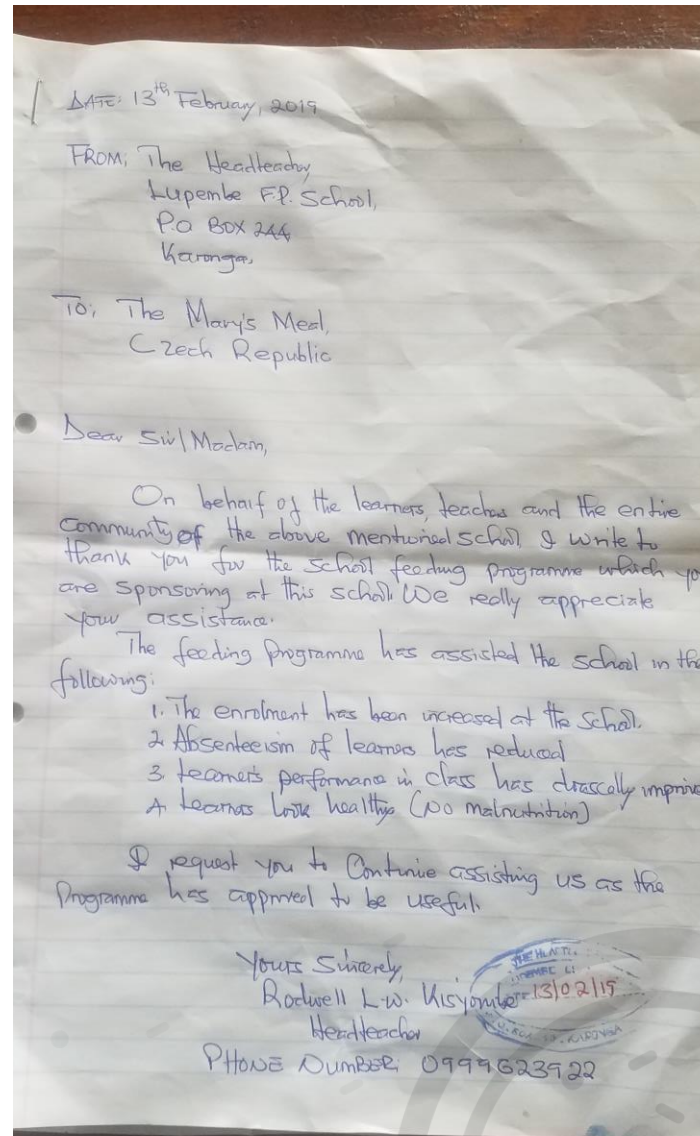 DATE: 13th February, 2019
FROM: The Headteacher,
Lupembe F.P. School,
P.O BOX 244
Karonga.
TO: The Mary's Meal,
Czech Republic
Dear Sir/Madam,
On behalf of the learners, teachers and the entire
community of the above mentioned school, I write to
thank you for the school feeding programme which yo
are sponsoring at this school. We really appreciate
your assistance.
The feeding programme has assisted the school in the
following:
1. The enrolment has been increased at the school.
2. Absenteeism of learners has reduced
3. Learners performance in class has drascally improve
4. Learners look healthy (No malnutrition)
I request you to continue assisting us as the
Programme has approved to be useful.
Yours Sincerely,
Rodwell L.W. Kisyombe 13/02/19
Headteacher
PHONE NUMBER: 0999623922